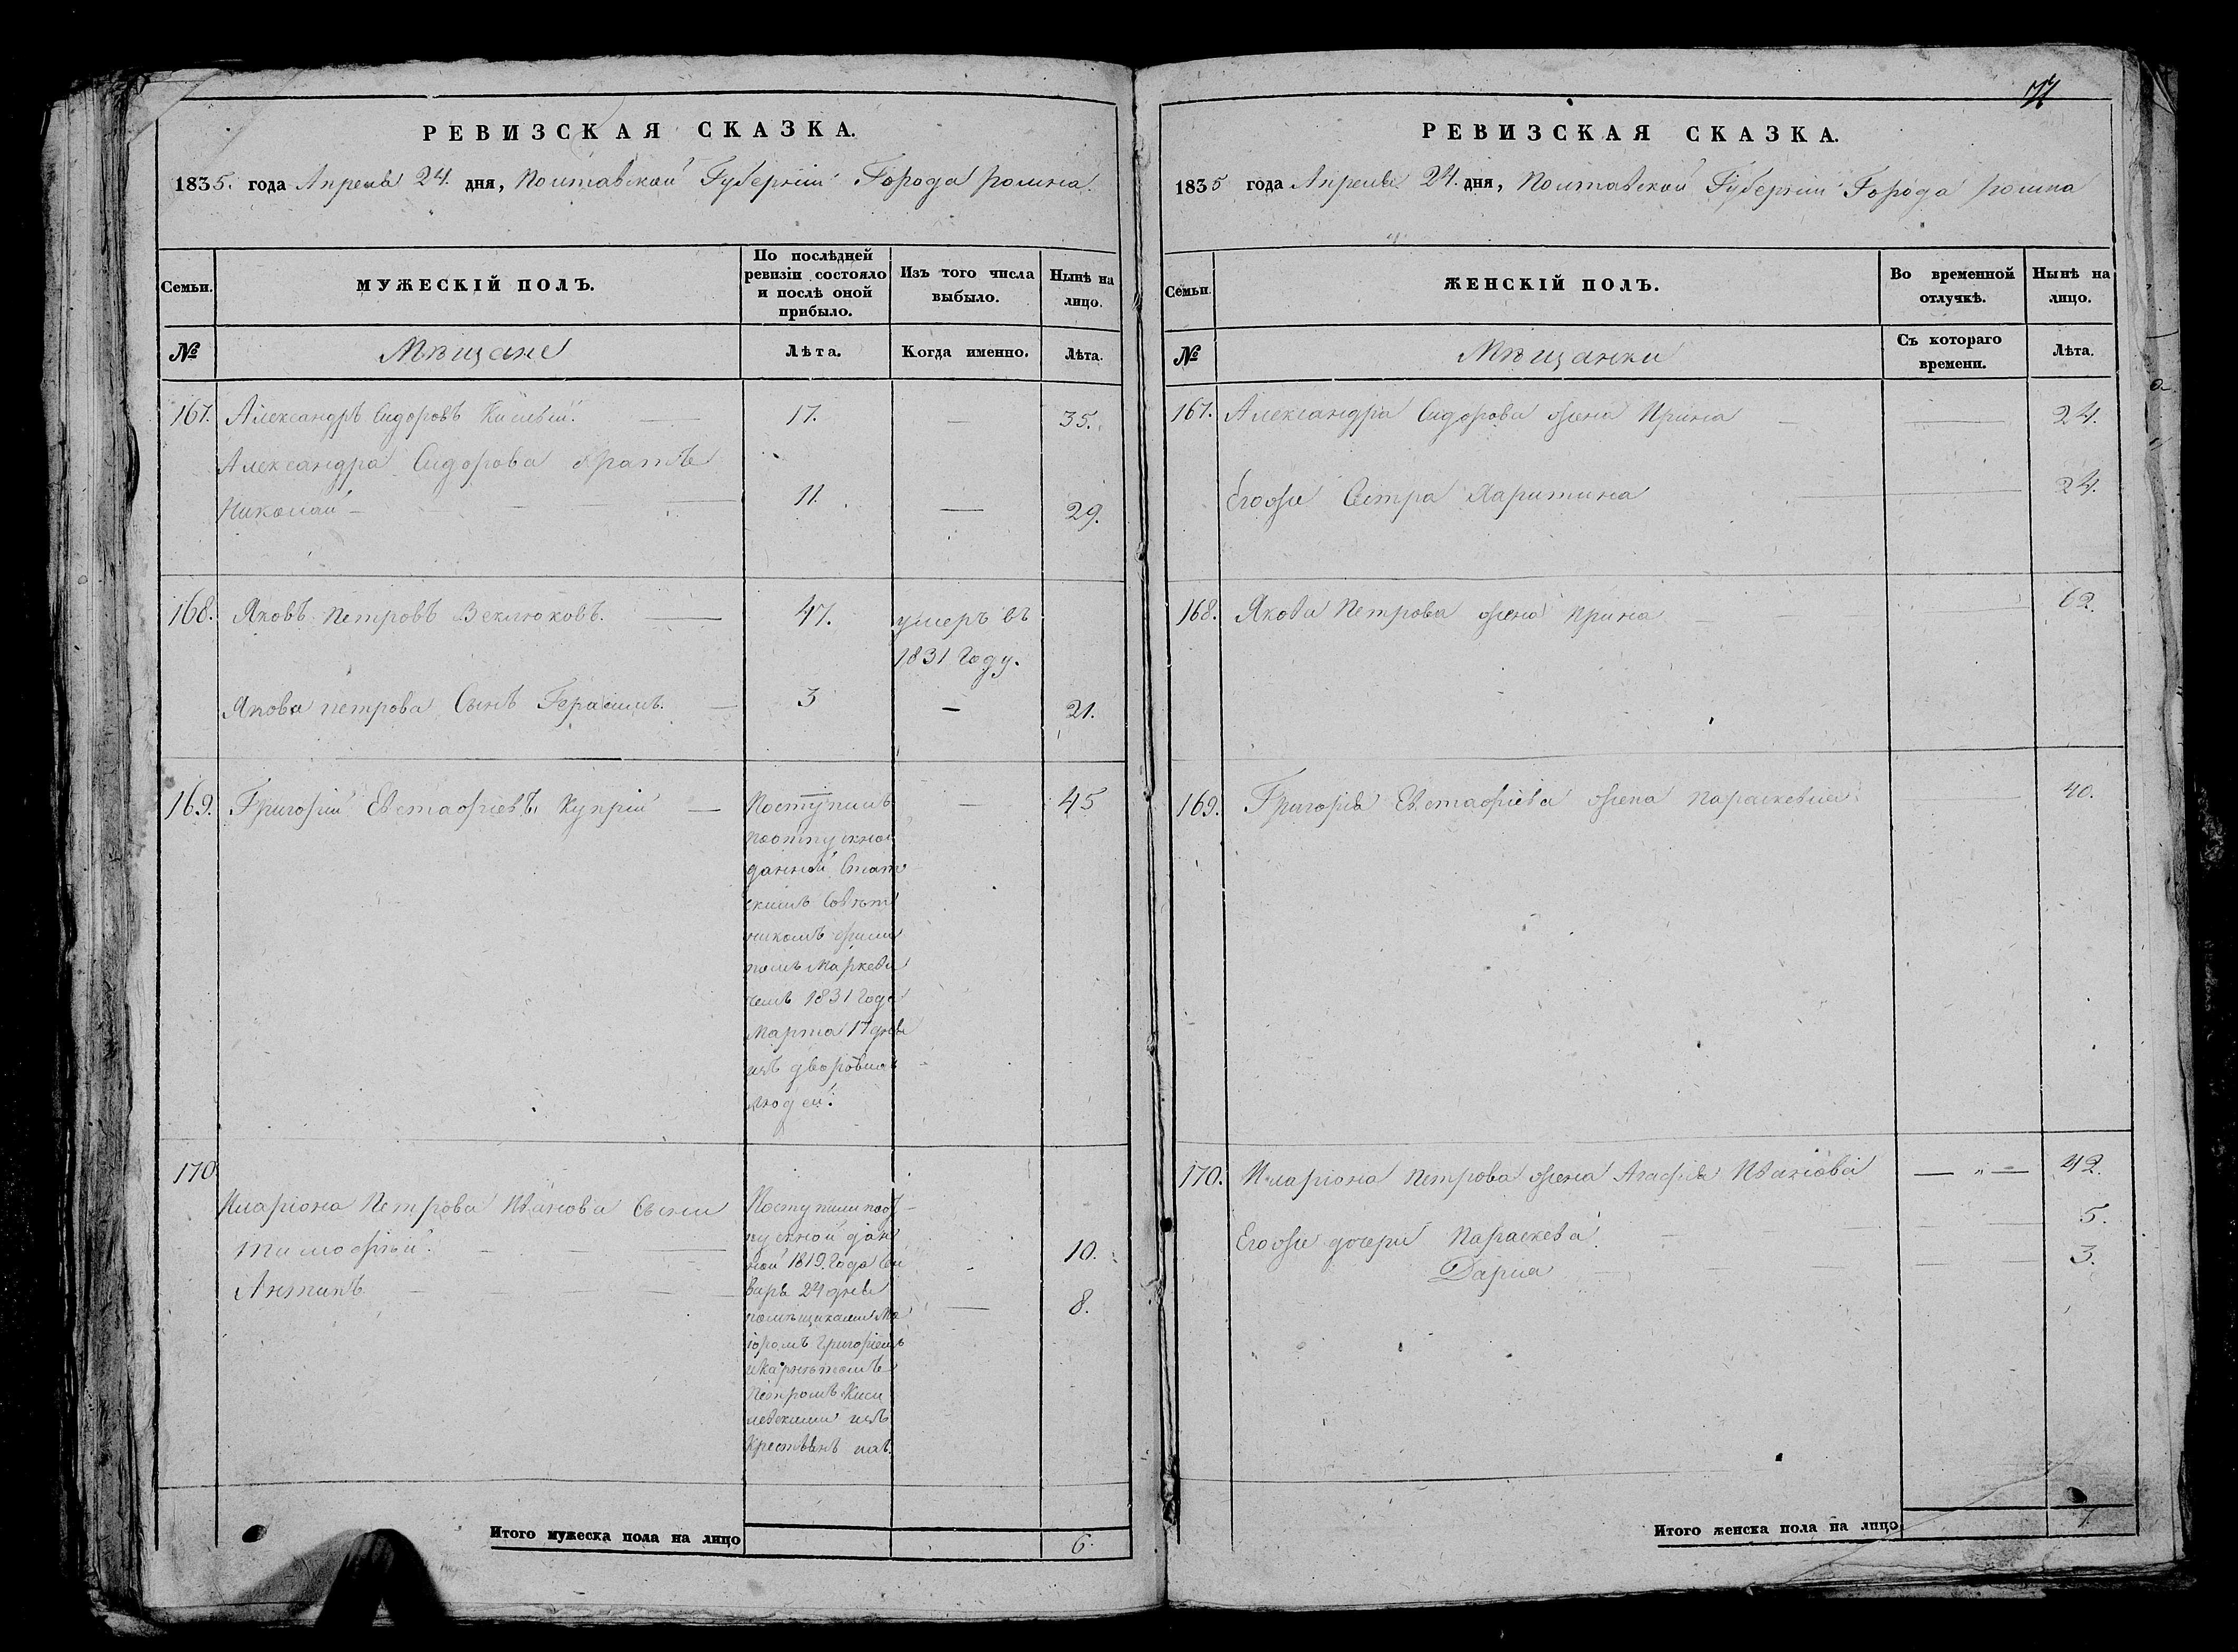 РЕВИЗСКАЯ СКАЗКА.
1835. года Апреля 24. дня, Полтавской Губерніи Города ромна.
Семьи.
МУЖЕСКІЙ ПОЛЪ.
По послѣдней ревизіи состояло и послѣ оной прибыло.
Изъ того числа выбыло.
Нынѣ на лицо.
№
Мѣщане
Лѣта.
Когда именно.
Лѣта.
167. Александръ Сидоровъ 17. — 35.
Александра Сидорова братъ
Николай — 11. — 29.
168. Яковъ Петровъ Веклюковъ. — 47. умеръ въ
1831 Году.
Якова петрова Сынъ Герасимъ. — 3 — 21.
169. Григорій Евстафіевъ Купрій — Поступилъ — 45
поотпускной
данной Стат
скимъ Совѣт
никомъ
Маркеви
чемъ 1831 Года
Марта 17 дня
изъ дворовыхъ
людей.
170
Иларіона Петрова Иванова Сыни Поступили поот
Тимофѣй. пускной дан 10.
ной 1819. Года
Антипъ варя 24 дня 8.
помѣщиками Ма
іоромъ Григоріемъ
икарнетомъ
Петромъ Киси
левскими изъ
Крестьянъ ихъ.
Итого мужеска пола на лицо 6.
РЕВИЗСКАЯ СКАЗКА.
1835 года Апреля 24. дня, Полтавской Губерніи Города ромна
Семьи.
ЖЕНСКІЙ ПОЛЪ.
Во временной отлучкѣ.
Нынѣ на лицо.
№
Мѣщанки
Съ котораго времени.
Лѣта.
167. Александра Сидорова жена Ирина — 24.
Егоже Сестра Харитина — 24.
168. Якова Петрова жена Ирина — 62.
169. Григорія Евстафіева жена Параскевія — 40.
170. Иларіона Петрова жена Агафія Иванова — „ — 42.
Егоже дочери Параскева — 5.
Дарія — 3.
Итого женска пола на лицо 7.